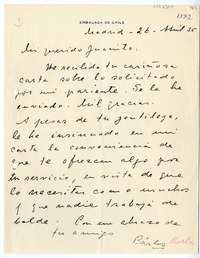 EMBAJADA DE CHILE
Madrid - 26 - Abril 35
Mi querido Juanito:
He recibido tu cariñosa
carta sobre lo solicitado
por mi pariente. Se la he
enviado. Mil gracias.
A pesar de tu gentileza,
le he insinuado en mi
carta la conveniencia de
que te ofrezcan algo por
tu servicio, en vista de que
lo necesitas como muchos
y que nadie trabaja de
balde. Con un abrazo de
tu amigo
Carlos Morla